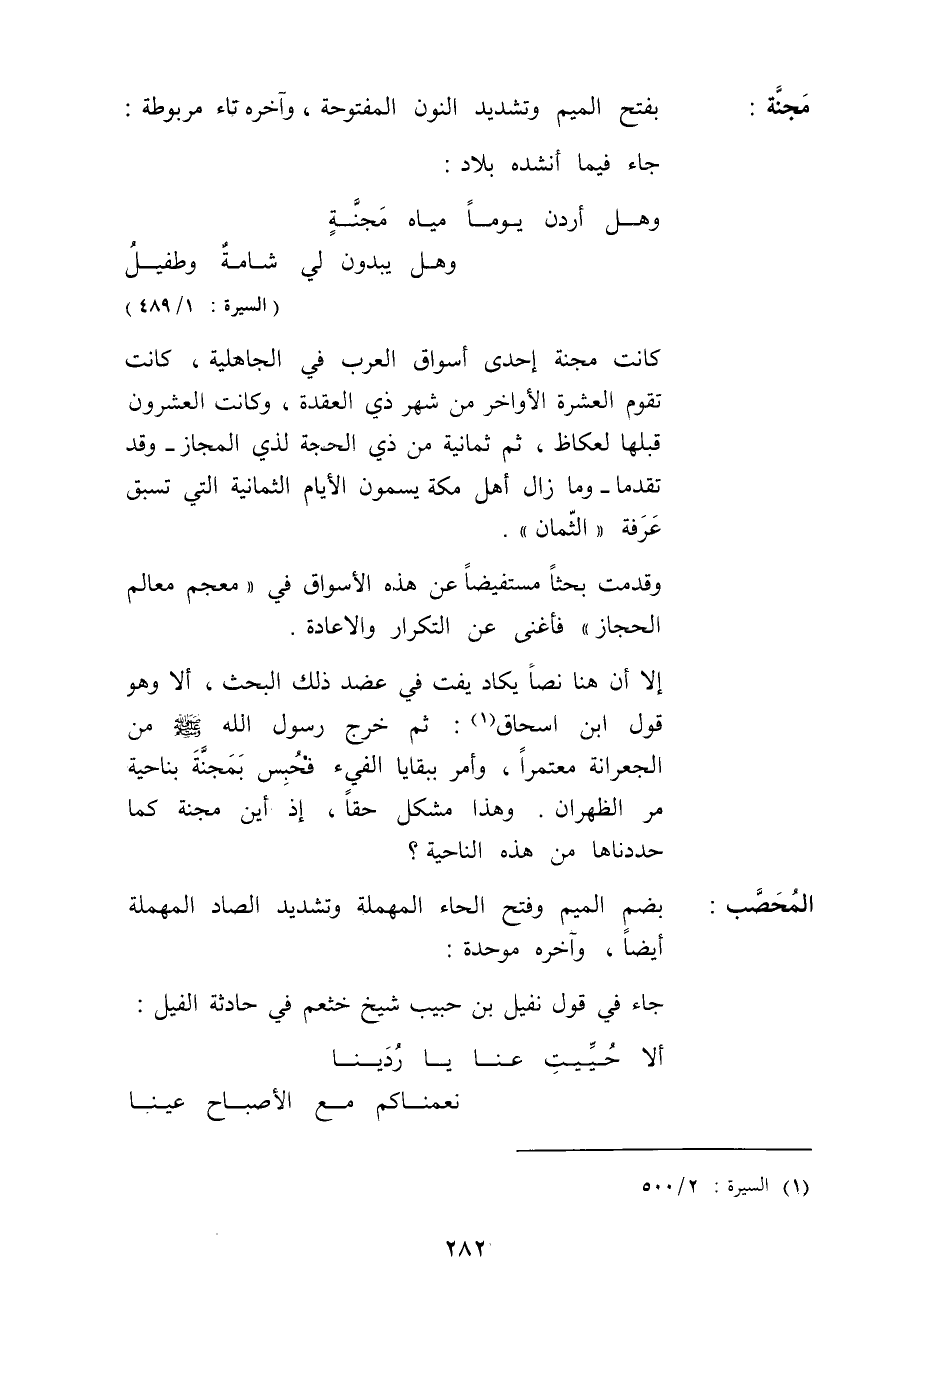 مَجنَّة : بفتح الميم وتشديد النون المفتوحة ، وآخره تاء مربوطة :
جاء فيما أنشده بلاد :
وهــل أردن يــومــاً ميـاه مَجنَّــةٍ
وهـل يبدون لي شـامـةٌ وطفيـلُ
( السيرة : ٤٨٩/١ )
كانت مجنة إحدى أسواق العرب في الجاهلية ، كانت
تقوم العشرة الأواخر من شهر ذي العقدة ، وكانت العشرون
قبلها لعكاظ ، ثم ثمانية من ذي الحجة لذي المجاز ـ وقد
تقدما ـ وما زال أهل مكة يسمون الأيام الثمانية التي تسبق
عَرَفة « الثّمان » .
وقدمت بحثاً مستفيضاً عن هذه الأسواق في « معجم معالم
الحجاز » فأغنى عن التكرار والاعادة .
إلا أن هنا نصاً يكاد يفت في عضد ذلك البحث ، ألا وهو
قول ابن اسحاق(١) : ثم خرج رسول الله ﷺ من
الجعرانة معتمراً ، وأمر ببقايا الفيء فحُبِس بَمَجنَّةَ بناحية
مر الظهران . وهذا مشكل حقاً ، إذ أين مجنة كما
حددناها من هذه الناحية ؟
المُحَصَّب : بضم الميم وفتح الحاء المهملة وتشديد الصاد المهملة
أيضاً ، وآخره موحدة :
جاء في قول نفيل بن حبيب شيخ خثعم في حادثة الفيل :
ألا حُيِّيـتِ عـنـا يــا رُدَيـنــا
نعمنـاكم مــع الأصبــاح عينـا
(١) السيرة : ٥٠٠/٢
٢٨٢